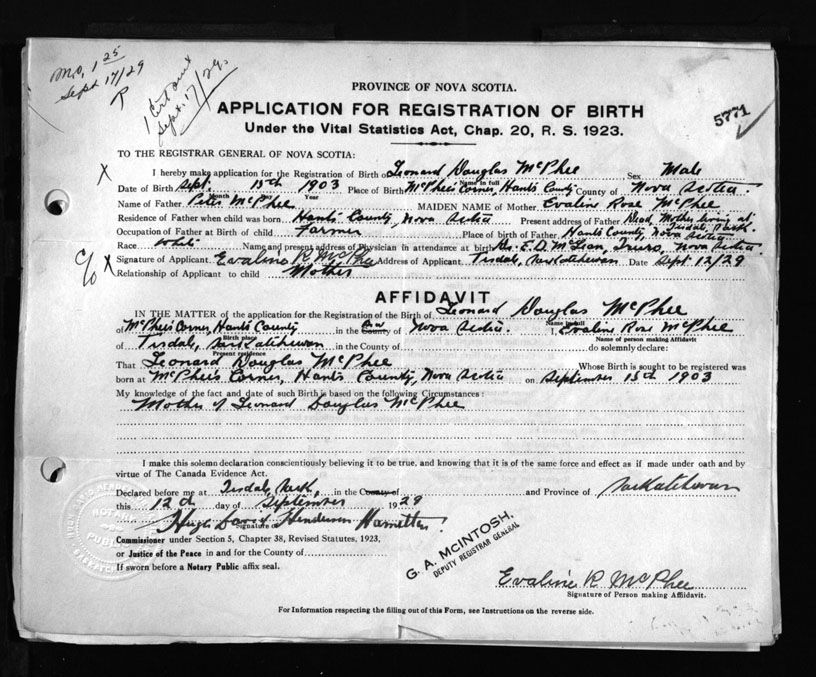 M.O. 1 25
Sept 17/29
P
1 Cert
Sept. 17/29.
5771
PROVINCE OF NOVA SCOTIA.
APPLICATION FOR REGISTRATION OF BIRTH
Under the Vital Statistics Act, Chap. 20, R. S. 1923.
TO THE REGISTRAR GENERAL OF NOVA SCOTIA:
I hereby make application for the Registration of Birth of Leonard Douglas McPhee Sex Male
Name in full
Date of Birth Sept. 15th 1903 Place of Birth McPhee's Corner, Hants County County of Nova Scotia.
Month Year
Name of Father Peter McPhee MAIDEN NAME of Mother Evaline Rose McPhee
Residence of Father when child was born Hants County, Nova Scotia Present address of Father Dead, Mother living at Tisdale, Sask.
Occupation of Father at Birth of child Farmer Place of birth of Father Hants County, Nova Scotia
Race White Name and present address of Physician in attendance at birth Dr. E. D. McLean, Truro, Nova Scotia
Signature of Applicant Evaline R. McPhee Address of Applicant Tisdale, Saskatchewan Date Sept. 12/29
Relationship of Applicant to child Mother
X
c/o X
AFFIDAVIT
IN THE MATTER of the application for the Registration of the Birth of Leonard Douglas McPhee
Name in full
of McPhee's Corner, Hants County in the County of Nova Scotia. I, Evaline Rose McPhee
Birth place Name of person making Affidavit
of Tisdale, Saskatchewan in the County of do solemnly declare:
Present residence
That Leonard Douglas McPhee Whose Birth is sought to be registered was
born at McPhee's Corner, Hants County, Nova Scotia on September 15th 1903
My knowledge of the fact and date of such Birth is based on the following Circumstances:
Mother of Leonard Douglas McPhee
I make this solemn declaration conscientiously believing it to be true, and knowing that it is of the same force and effect as if made under oath and by
virtue of The Canada Evidence Act.
Declared before me at Tisdale, Sask., in the County of and Province of Saskatchewan
this 12th day of September 1929
Hugh David Henderson
Signature of
Commissioner under Section 5, Chapter 38, Revised Statutes, 1923,
or Justice of the Peace in and for the County of
If sworn before a Notary Public affix seal.
G. A. McINTOSH,
DEPUTY REGISTRAR GENERAL
Evaline R McPhee
Signature of Person making Affidavit.
For Information respecting the filling out of this Form, see Instructions on the reverse side.